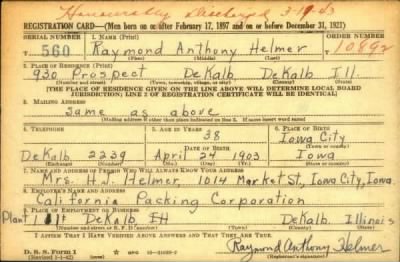 Honorably Discharged 3-19-43
REGISTRATION CARD—(Men born on or after February 17, 1897 and on or before December 31, 1921)
SERIAL NUMBER 1. NAME (Print) ORDER NUMBER
T 560 Raymond Anthony Helmer 10892
(First) (Middle) (Last)
2. PLACE OF RESIDENCE (Print)
930 Prospect DeKalb DeKalb Ill.
(Number and street) (Town, township, village, or city) (County) (State)
[THE PLACE OF RESIDENCE GIVEN ON THE LINE ABOVE WILL DETERMINE LOCAL BOARD
JURISDICTION; LINE 2 OF REGISTRATION CERTIFICATE WILL BE IDENTICAL]
3. MAILING ADDRESS
Same as above
[Mailing address if other than place indicated on line 2. If same insert word same]
4. TELEPHONE 5. AGE IN YEARS 6. PLACE OF BIRTH
38 Iowa City
DATE OF BIRTH (Town or county)
DeKalb 2239 April 24 1903 Iowa
(Exchange) (Number) (Mo.) (Day) (Yr.) (State or country)
7. NAME AND ADDRESS OF PERSON WHO WILL ALWAYS KNOW YOUR ADDRESS
Mrs. H.J. Helmer, 1014 Market St., Iowa City, Iowa.
8. EMPLOYER'S NAME AND ADDRESS
California Packing Corporation
9. PLACE OF EMPLOYMENT OR BUSINESS
Plant DeKalb DeKalb. Illinois
(Number and street or R. F. D. number) (Town) (County) (State)
I AFFIRM THAT I HAVE VERIFIED ABOVE ANSWERS AND THAT THEY ARE TRUE.
D. S. S. Form 1 Raymond Anthony Helmer
(Registrant's signature)